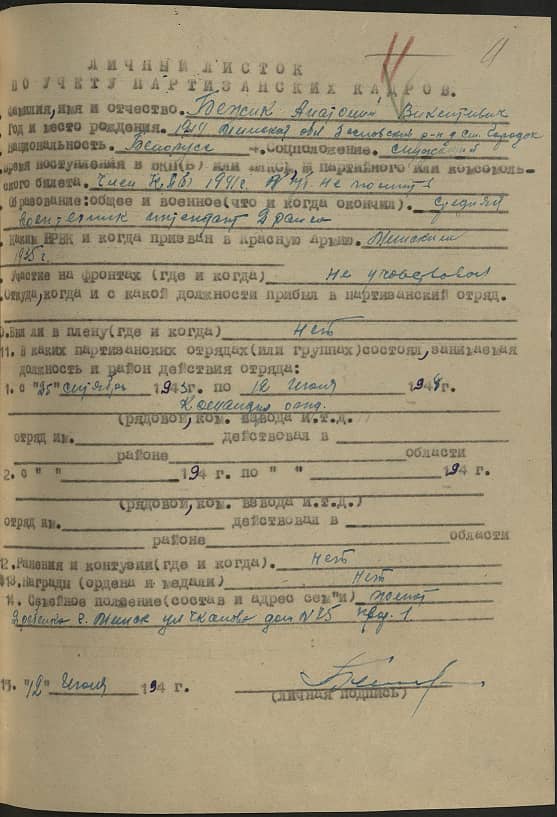 ЛИЧНЫЙ ЛИСТОК
ПО УЧЕТУ ПАРТИЗАНСКИХ КАДРОВ.
Фамилия, имя и отчество. Бежик Анатолий Викентьевич
Год и место рождения. 1914 Минская обл Заславский р-н д. Ст. Городок
Национальность. Белорусс 4. Соцположение. служащий
Время поступления в ВКП(б) или ВЛКСМ, № партийного или комсомоль-
ского билета. Член КП(б)Б 1941 г. № п/б не
Образование: общее и военное (что и когда окончил). средняя
воен. техник интендант 2 ранга
Каким НРВК и когда призван в Красную Армию. Минским
1935 г.
Участие на фронтах (где и когда) не участвовал
Откуда, когда и с какой должности прибыл в партизанский отряд.
Был ли в плену (где и когда) нет
11. В каких партизанских отрядах (или группах) состоял, занимаемая
должность и район действия отряда:
1. с "25" сентября 1943 г. по 12 июля 194 г.
Командир отд.
(рядовой, ком. взвода и.т.д.)
отряд им. действовал в
районе области
2. с " " 194 г. по " " 194 г.
(рядовой, ком. взвода и.т.д.)
отряд им. действовал в
районе области
12. Ранения и контузии (где и когда). Нет
13. Награды (ордена и медали) Нет
14. Семейное положение (состав и адрес сем"и) женат
г. Минск ул Чкалова дом №25 кв. 1.
15. "12" июля 194 г.
(личная подпись)